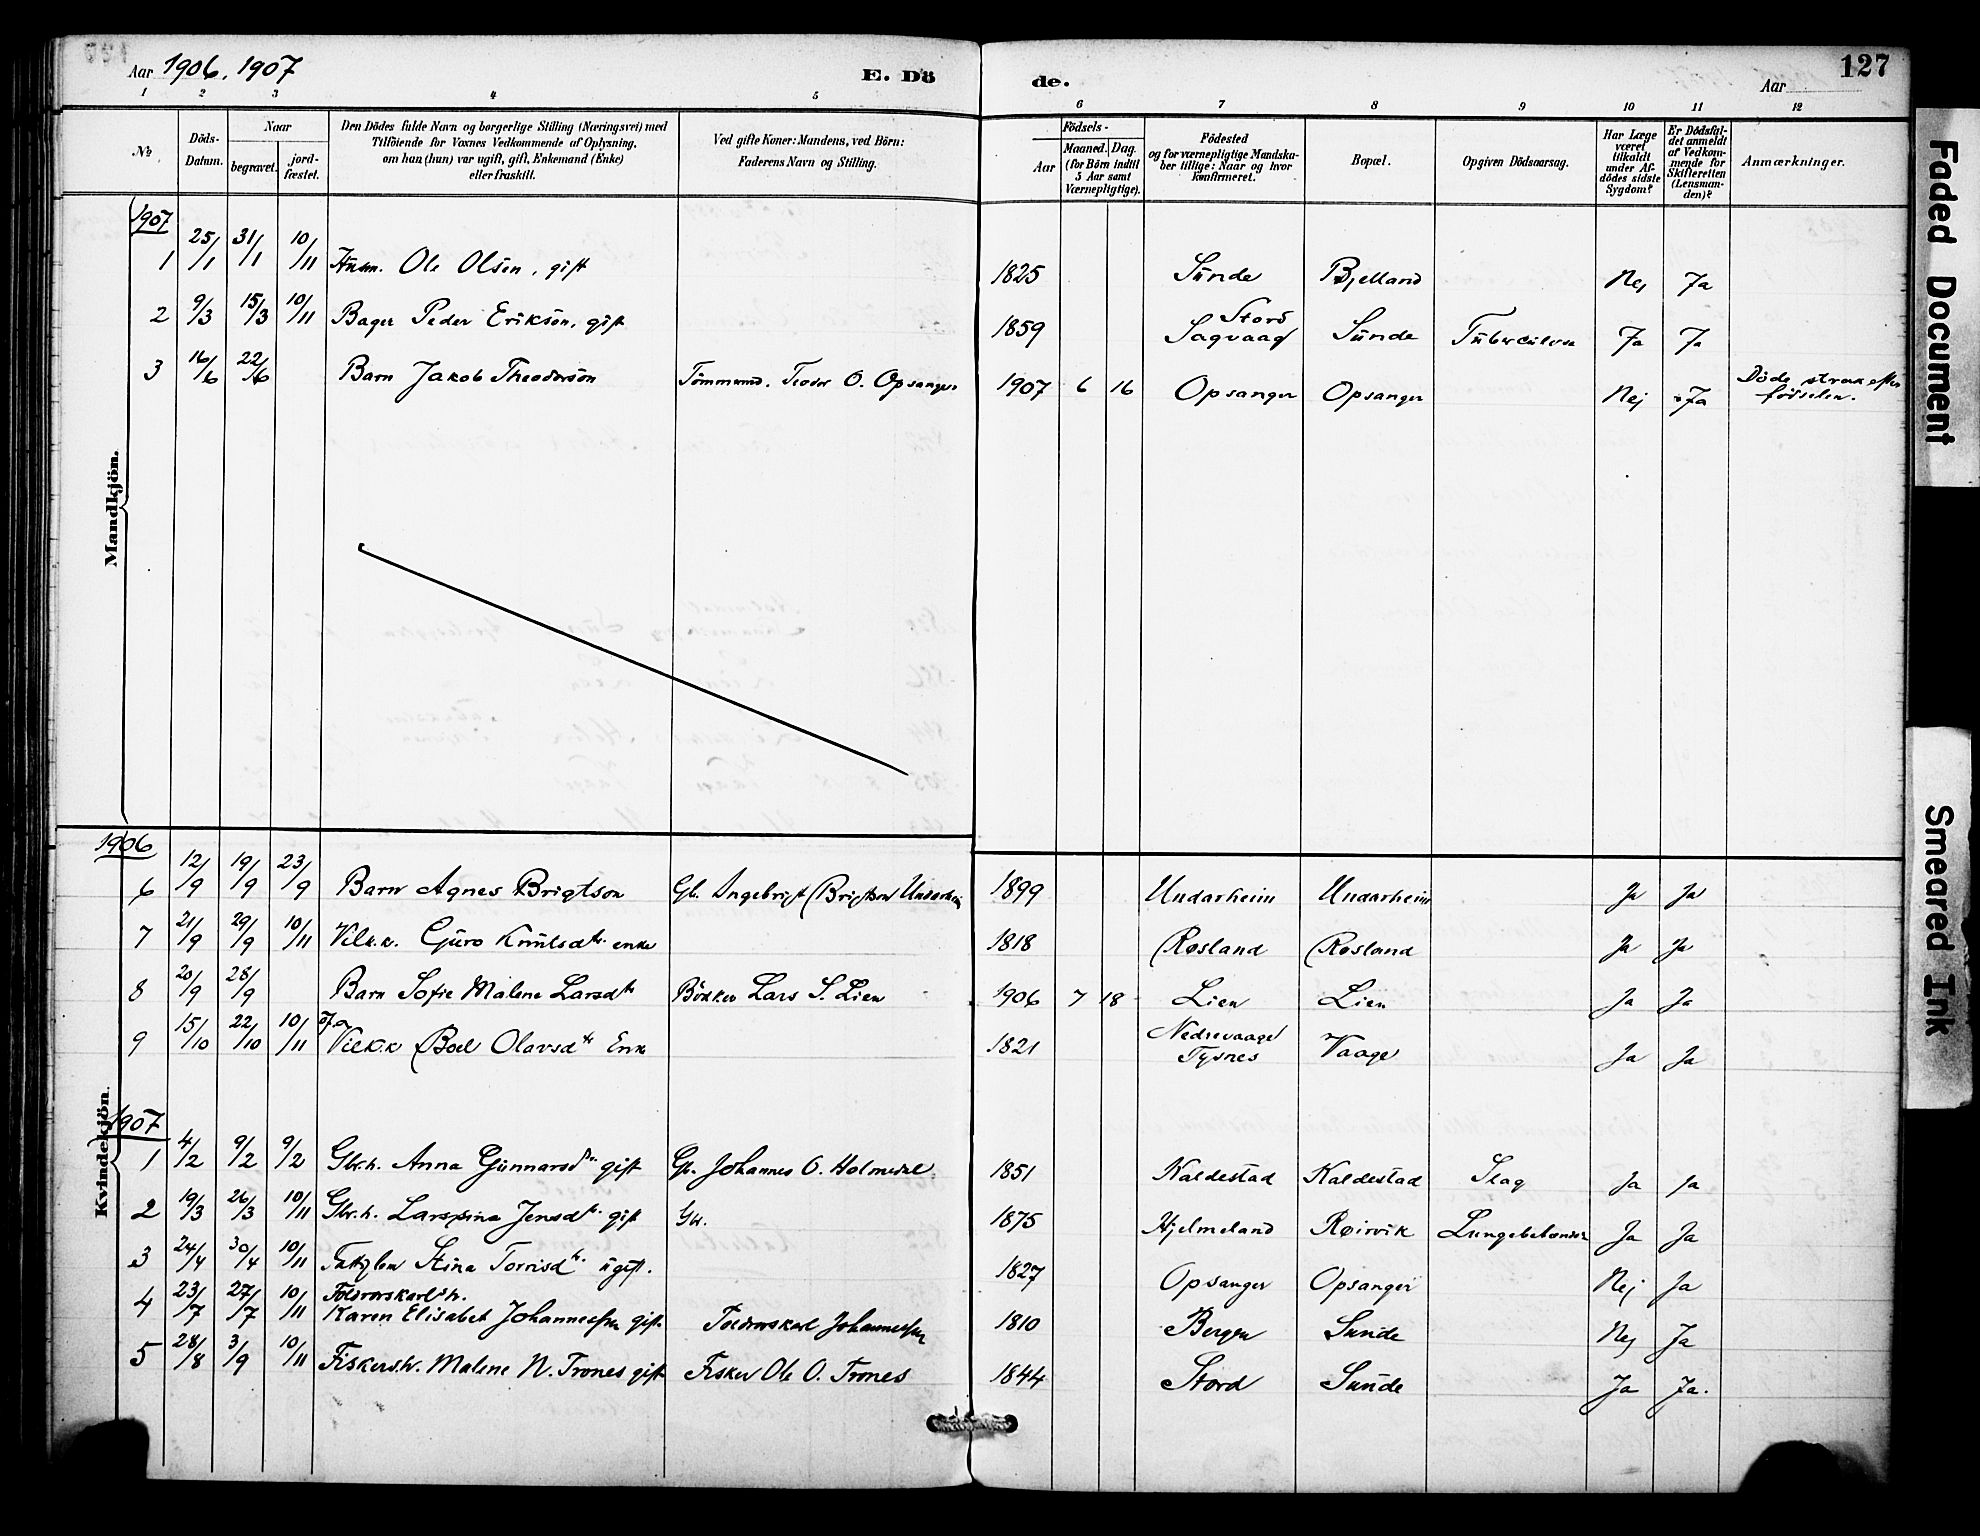 Aar 1906. 1907 E. Dö de. Aar 127
1 2 3 4 5 6 7 8 9 10 11 12
No
Döds-Datum.
Naar
begravet. jord-fæstet.
Den Dödes fulde Navn og borgerlige Stilling (Næringsvei) med
Tilföiende for Voxnes Vedkommende af Oplysning,
om han (hun) var ugift, gift, Enkemand (Enke)
eller fraskilt.
Ved gifte Koner: Mandens, ved Börn:
Faderens Navn og Stilling.
Födsels-
Aar
Maaned. Dag.
(for Börn indtil
5 Aar samt
Værnepligtige).
Födested
og for værnepligtige Mandska-
ber tillige: Naar og hvor
konfirmeret.
Bopæl.
Opgiven Dödsaarsag.
Har Læge
været
tilkaldt
under Af-
dödes sidste
Sygdom?
Er Dödsfal-
det anmeldt
af Vedkom-
mende for
Skifteretten
(Lensman-
den)?
Anmærkninger.
Mandkjön.
1907
1 25/1 31/1 10/11 Husm. Ole Olsen, gift 1825 Sünde Bjelland Nej Ja
2 9/3 15/3 10/11 Bager Peder Erikson, gift 1859 Stord Sagvaag Sünde Tüberculose Ja Ja
3 16/6 22/6 Barn Jakob Theodorson Tömmermd. Teodor O. Opsanger 1907 6 16 Opsanger Opsanger Nej Ja Döde strax efter
födselen.
Kvindekjön.
1906
6 12/9 19/9 23/9 Barn Agnes Brigtson Gb. Ingebrigt Brigtson Undarheim 1899 Undarheim Undarheim Ja Ja
7 21/9 29/9 10/11 Vilk.k. Güro Knütsdtr. enke 1818 Røsland Røsland Ja Ja
8 20/9 28/9 Barn Sofie Malene Larsdtr Bödker Lars S. Lien 1906 7 18 Lien Lien Ja Ja
9 15/10 22/10 10/11 07 Vilk.k Boel Olavsdtr Enke 1821 Nedrevaage
Tysnes Vaage Ja Ja
1907
1 4/2 9/2 9/2 Gbr.h. Anna Günnarsdtr. gift Gb. Johannes O. Holmedal 1851 Kaldestad Kaldestad Slag Ja Ja
2 19/3 26/3 10/11 Gbr.h. Larssina Jensdtr. gift Gbr. 1875 Hjelmeland Røirvik Lungebetændelse Ja Ja
3 24/4 30/4 10/11 Fattiglem Stina Torrisdtr. ügift. 1827 Opsanger Opsanger Nej Ja
4 23/7 27/7 10/11 Foedraadskarlsh.
Karen Elisabet Johannessen gift. Johannessen 1810 Bergen Sunde Nej Ja
5 28/8 3/9 10/11 Fiskersh. Malene N. Trones gift Fisker Ole O. Trones 1844 Stord Sunde Ja Ja.
Faded Document
Smeared Ink